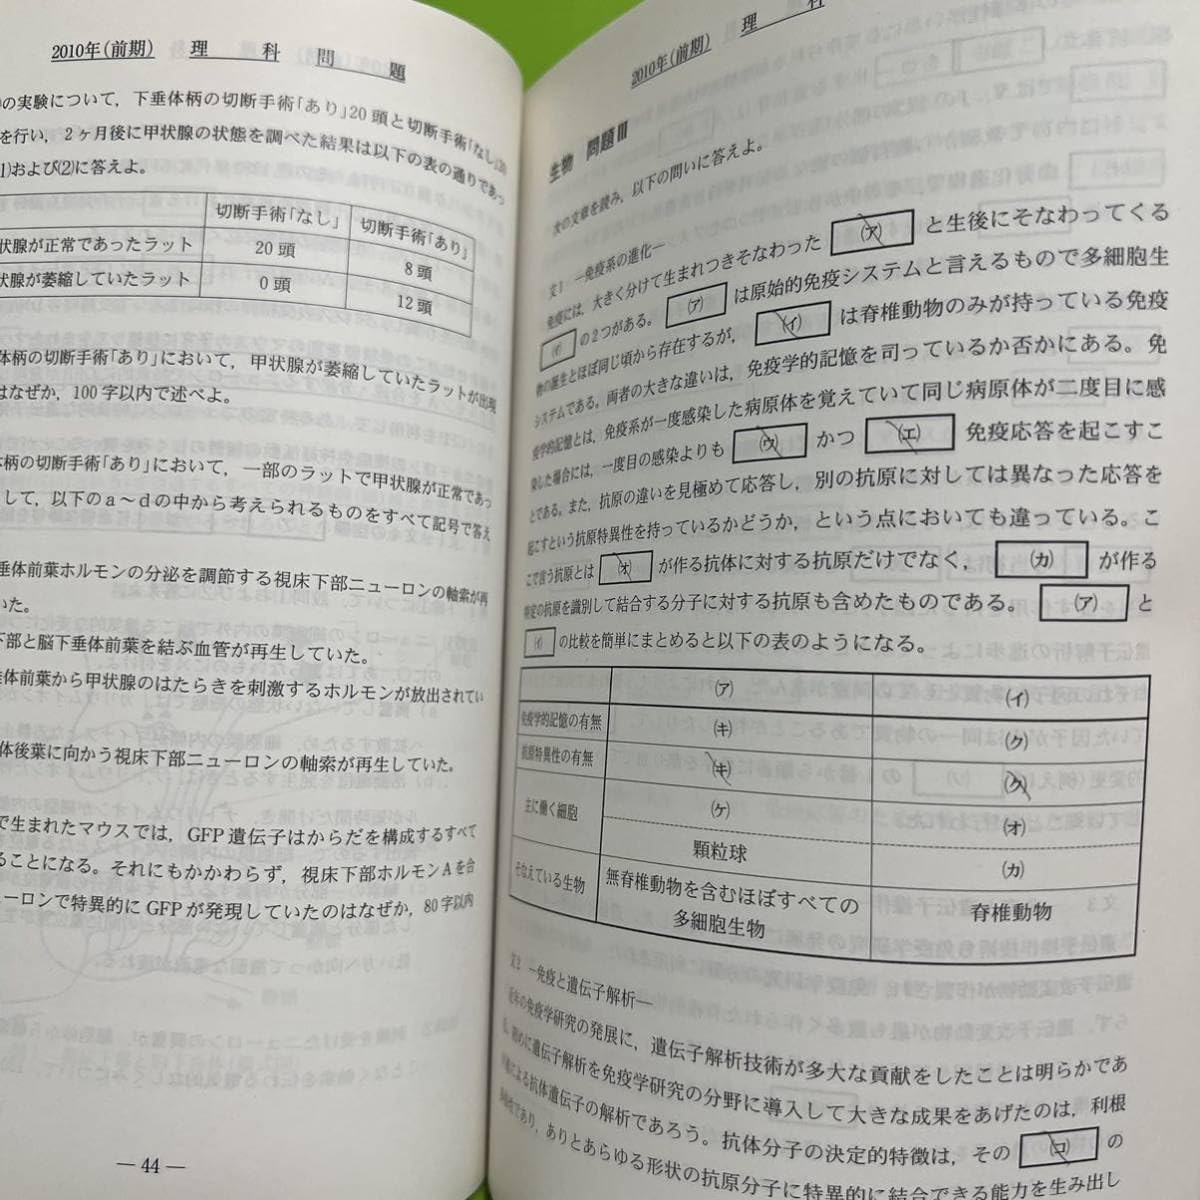 2010年(前期) 理科問題
の実験について，下垂体柄の切断手術「あり」20頭と切断手術「なし」20
を行い，2ヶ月後に甲状腺の状態を調べた結果は以下の表の通りであっ
1)および(2)に答えよ。
切断手術「なし」 切断手術「あり」
状腺が正常であったラット 20頭 8頭
状腺が萎縮していたラット 0頭 12頭
体柄の切断手術「あり」において，甲状腺が萎縮していたラットが出現
はなぜか，100字以内で述べよ。
体柄の切断手術「あり」において，一部のラットで甲状腺が正常であっ
して，以下のa～dの中から考えられるものをすべて記号で答え
垂体前葉ホルモンの分泌を調節する視床下部ニューロンの軸索が再
いた。
下部と脳下垂体前葉を結ぶ血管が再生していた。
体前葉から甲状腺のはたらきを刺激するホルモンが放出されてい
体後葉に向かう視床下部ニューロンの軸索が再生していた。
で生まれたマウスでは，GFP遺伝子はからだを構成するすべて
ることになる。それにもかかわらず，視床下部ホルモンAを合
ューロンで特異的にGFPが発現していたのはなぜか，80字以内
— 44 —
2010年(前期) 理科
生物 問題Ⅲ
次の文章を読み，以下の問いに答えよ。
文1 —免疫系の進化—
免疫には，大きく分けて生まれつきそなわった (ア) と生後にそなわってくる
(イ) の2つがある。 (ア) は原始的免疫システムと言えるもので多細胞生
物の誕生とほぼ同じ頃から存在するが， (イ) は脊椎動物のみが持っている免疫
システムである。両者の大きな違いは，免疫学的記憶を司っているか否かにある。免
疫学的記憶とは，免疫系が一度感染した病原体を覚えていて同じ病原体が二度目に感
染した場合には，一度目の感染よりも (ウ) かつ (エ) 免疫応答を起こすこ
とである。また，抗原の違いを見極めて応答し，別の抗原に対しては異なった応答を
起こすという抗原特異性を持っているかどうか，という点においても違っている。こ
こで言う抗原とは (オ) が作る抗体に対する抗原だけでなく， (カ) が作る
特定の抗原を識別して結合する分子に対する抗原も含めたものである。 (ア) と
(イ) の比較を簡単にまとめると以下の表のようになる。
(ア) (イ)
免疫学的記憶の有無 (キ) (ク)
抗原特異性の有無 (キ) (ク)
主に働く細胞 (ケ) (オ)
顆粒球 (カ)
そなえている生物 無脊椎動物を含むほぼすべての多細胞生物 脊椎動物
文2 —免疫と遺伝子解析—
近年の免疫学研究の発展に，遺伝子解析技術が多大な貢献をしたことは明らかであ
る。初めに遺伝子解析を免疫学研究の分野に導入して大きな成果をあげたのは，利根
川進による抗体遺伝子の解析であろう。抗体分子の決定的特徴は，その (コ) の
であり，ありとあらゆる形状の抗原分子に特異的に結合できる能力を生み出し